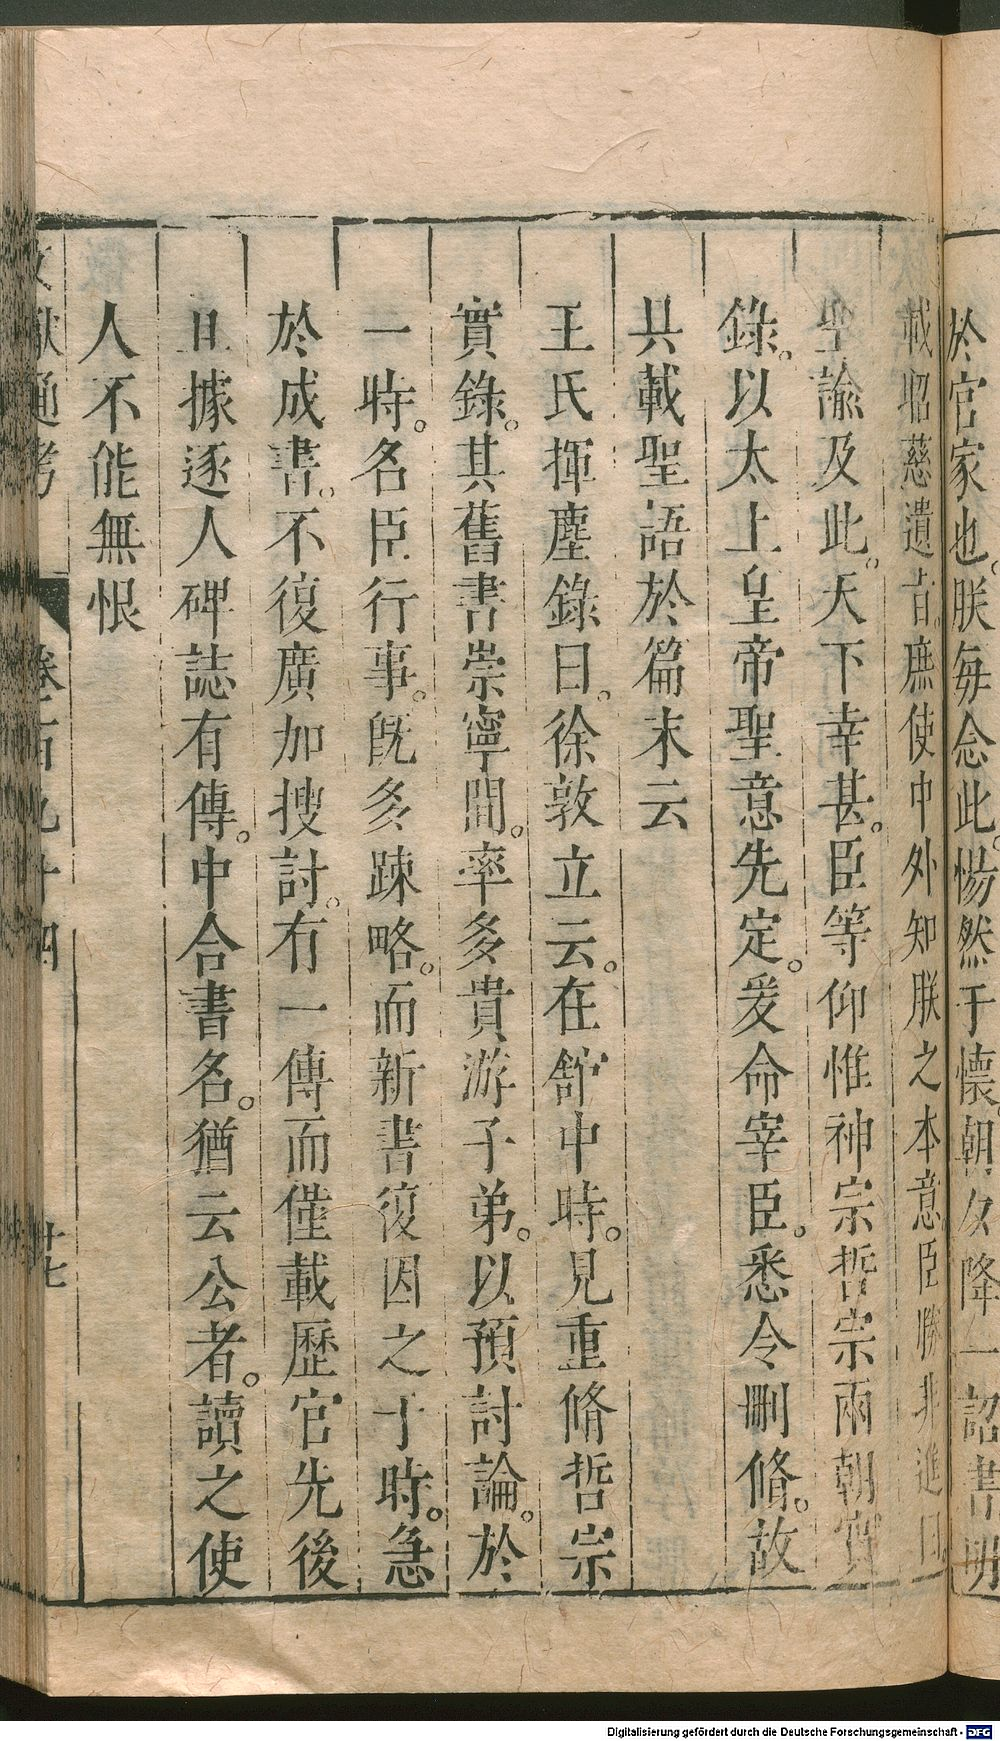 於官家也。朕每念此。惕然于懷。朝夕降一詔書明
載昭慈遺旨。庶使中外知朕之本意臣勝非進曰
聖諭及此。天下幸甚。臣等仰惟神宗哲宗兩朝實
錄。以太上皇帝聖意先定。爰命宰臣。悉令刪脩。故
具載聖語於篇末云
王氏揮麈錄曰。徐敦立云。在舘中時。見重脩哲宗
實錄。其舊書崇寧間。率多貴游子弟。以預討論。於
一時。名臣行事。旣多踈略。而新書復因之于時。急
於成書。不復廣加搜討。有一傳而僅載歷官先後
且據逐人碑誌有傳。中合書名。猶云公者。讀之使
人不能無恨
文獻通考 卷一百九十四 廿七
Digitalisierung gefördert durch die Deutsche Forschungsgemeinschaft - DFG